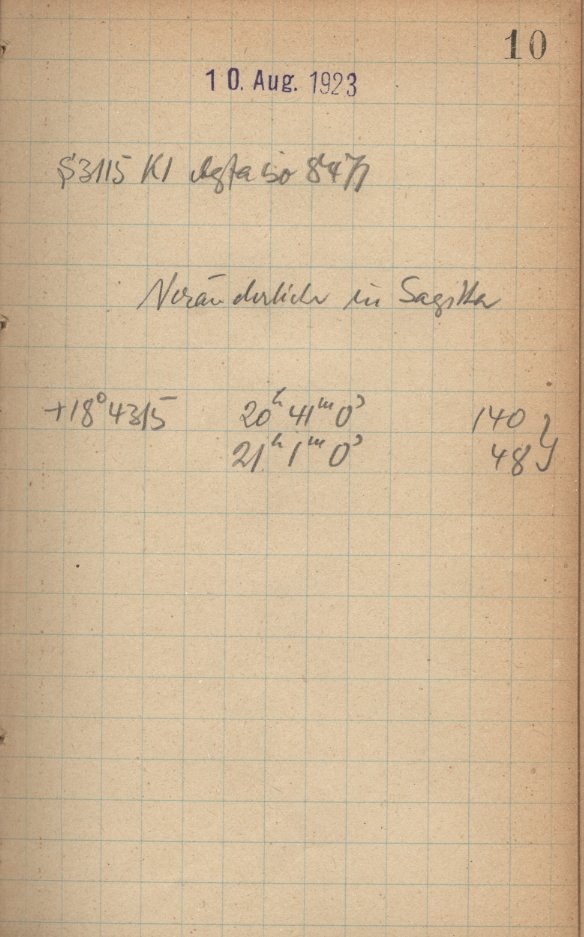 10
10. Aug. 1923
S3115 K1 Agfa iso 8477
Veränderlicher in Sagitta
+18°4315 20ʰ 41ᵐ 0ˢ 140
21ʰ 1ᵐ 0ˢ 48